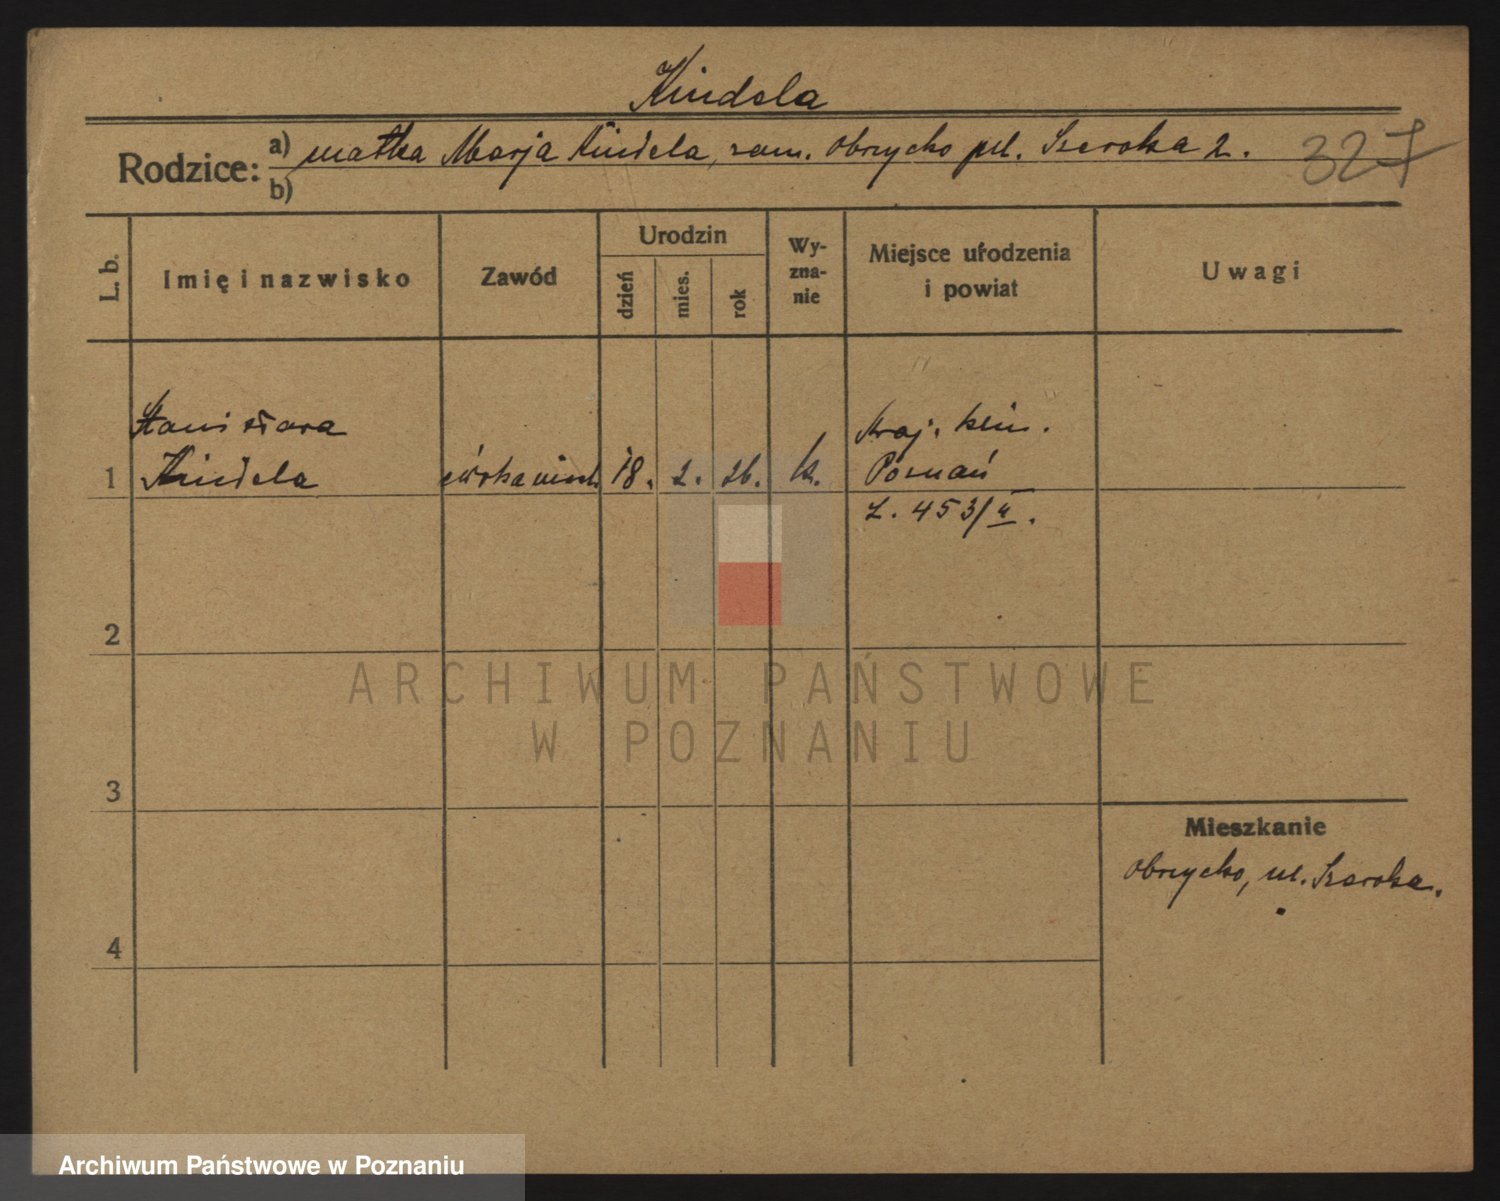 Kindela
Rodzice:
a) matka Marja Kindela, zam. Obrzycko pl. Szeroka 2.
327
b)
L. b.
Imię i nazwisko
Zawód
Urodzin
dzień
mies.
rok
Wy-
zna-
nie
Miejsce urodzenia
i powiat
Uwagi
Stanisława
Kindela
1
córka nieśl.
18.
2.
26.
k.
Kraj. klin.
Poznań
L. 453/II.
2
3
4
Mieszkanie
Obrzycko, ul. Szeroka.
ARCHIWUM PAŃSTWOWE
W POZNANIU
Archiwum Państwowe w Poznaniu